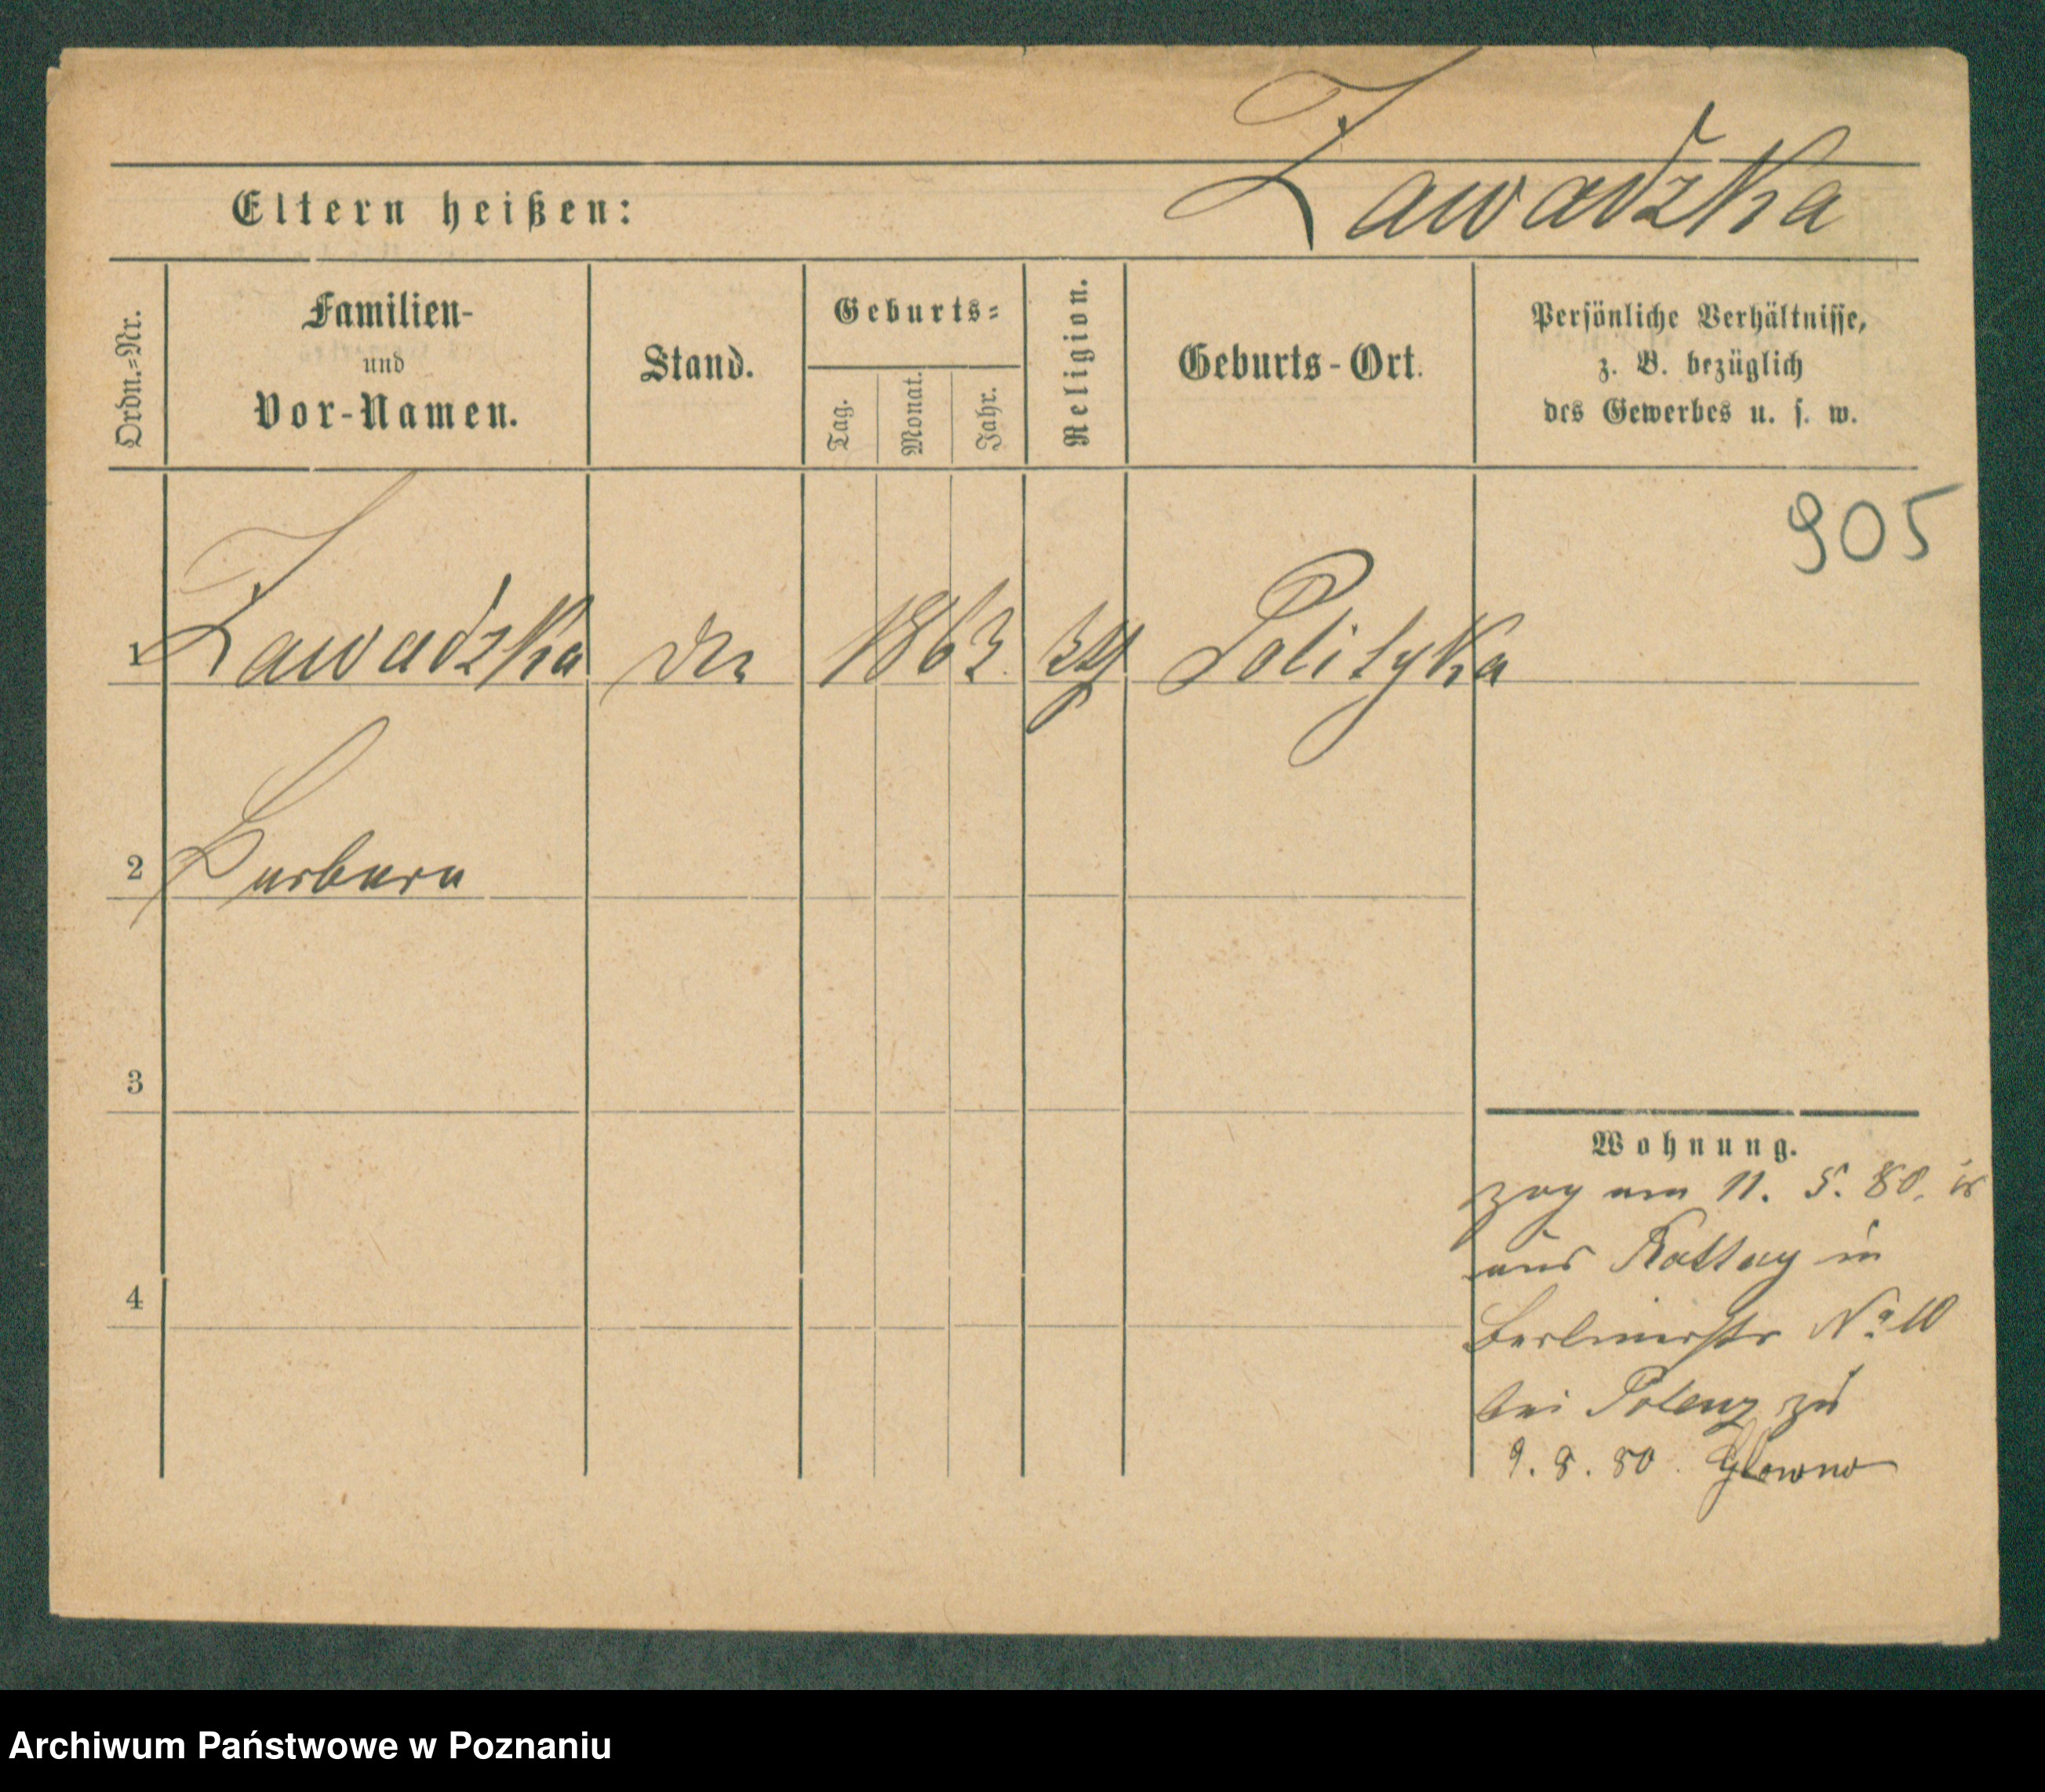 Zawadzka
Eltern heißen:
Ordn.=Nr.
Familien-
und
Vor-Namen.
Stand.
Geburts=
Tag.
Monat.
Jahr.
Religion.
Geburts-Ort.
Persönliche Verhältnisse,
z. B. bezüglich
des Gewerbes u. s. w.
905
1 Zawadzka 1863 Polityka
2 Barbara
3
4
Wohnung.
zog am 11. 5. 80.
aus in
Berlinerstr No 10
bei zu
9. 8. 80. Glowno
Archiwum Państwowe w Poznaniu